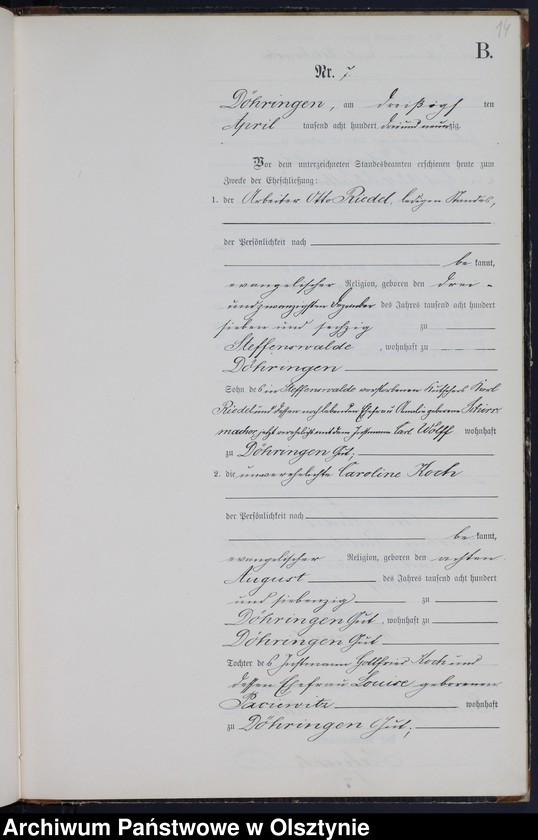 14
B.
Nr. 7.
Döhringen, am dreißigsten
April tausend acht hundert dreiundneunzig.
Vor dem unterzeichneten Standesbeamten erschienen heute zum
Zwecke der Eheschließung:
1. der Arbeiter Otto Riedel, ledigen Standes,
der Persönlichkeit nach
be kannt,
evangelischer Religion, geboren den drei-
undzwanzigsten Dezember des Jahres tausend acht hundert
sieben und sechzig zu
Steffenswalde, wohnhaft zu
Döhringen
Sohn des in Steffenswalde verstorbenen Kutschers Karl
Riedel und dessen nachlebenden Ehefrau Amalie geborene
jetzt verehelicht mit dem Instmann Carl Wölff wohnhaft
zu Döhringen Gut;
2. die unverehelichte Caroline Koch
der Persönlichkeit nach
be kannt,
evangelischer Religion, geboren den achten
August des Jahres tausend acht hundert
und siebenzig zu
Döhringen Gut, wohnhaft zu
Döhringen Gut
Tochter des Instmann Gottfried Koch und
dessen Ehefrau Louise geborenen
wohnhaft
zu Döhringen Gut;
Archiwum Państwowe w Olsztynie